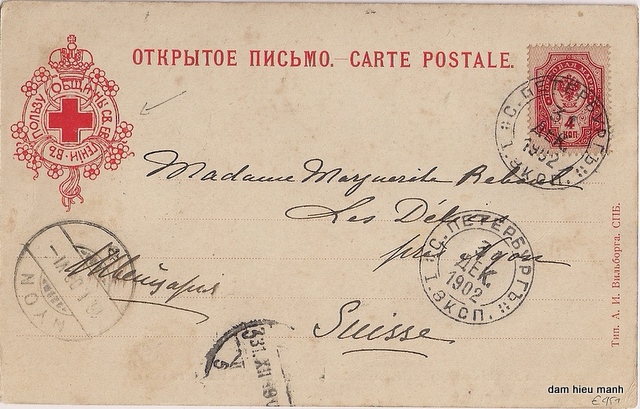 ОТКРЫТОЕ ПИСЬМО.—CARTE POSTALE.
ВЪ ПОЛЬЗУ ОБЩИНЫ СВ. ЕВГЕНІИ
4
КОП.
С. ПЕТЕРБУРГЪ
3
ДЕК.
1902
1 ЭКСП.
Madame Marguerite
Les Délices
près Nyon
Швейцарія
Suisse
С. ПЕТЕРБУРГЪ
3
ДЕК.
1902
1 ЭКСП.
NYON
31.XII
Тип. А. И. Вильборга. СПБ.
dam hieu manh
€451